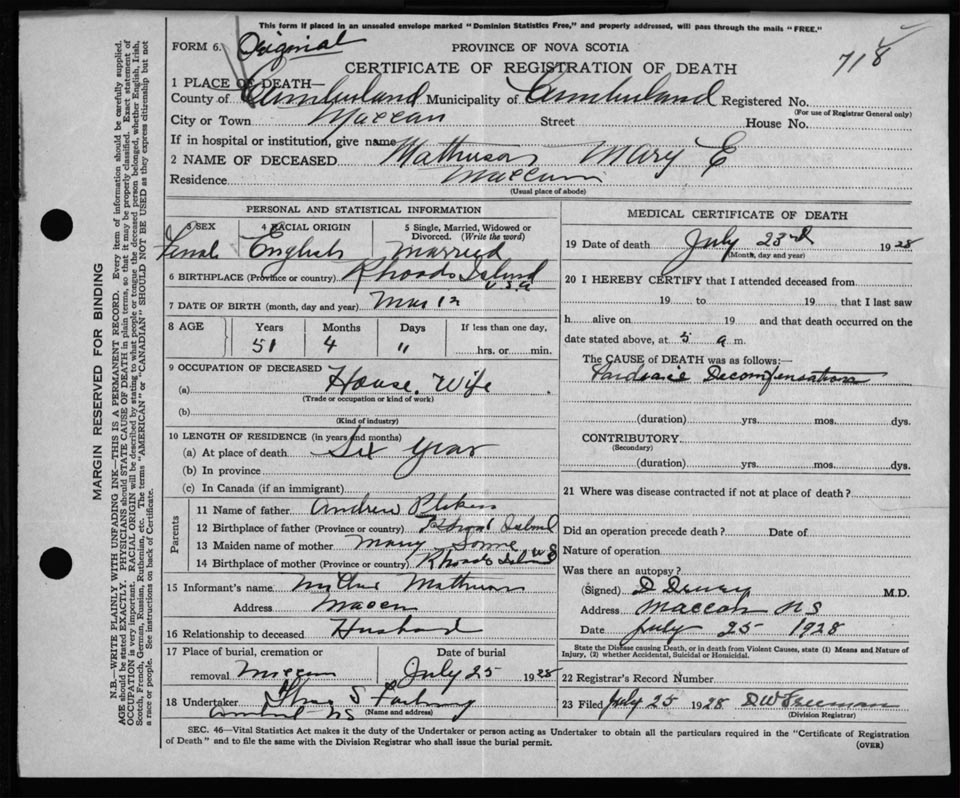 This form if placed in an unsealed envelope marked "Dominion Statistics Free," and properly addressed, will pass through the mails "FREE."
FORM 6. Original
PROVINCE OF NOVA SCOTIA
718
CERTIFICATE OF REGISTRATION OF DEATH
1 PLACE OF DEATH—
County of Cumberland Municipality of Cumberland Registered No.
(For use of Registrar General only)
City or Town Maccan Street House No.
If in hospital or institution, give name
2 NAME OF DECEASED Matheson Mary E
Residence Maccan
(Usual place of abode)
PERSONAL AND STATISTICAL INFORMATION
3 SEX 4 RACIAL ORIGIN 5 Single, Married, Widowed or Divorced. (Write the word)
Female English Married
6 BIRTHPLACE (Province or country) Rhoads Island U.S.A
7 DATE OF BIRTH (month, day and year) Mar 12
8 AGE Years Months Days If less than one day,
51 4 " hrs. or min.
9 OCCUPATION OF DECEASED
(a) House Wife
(Trade or occupation or kind of work)
(b)
(Kind of industry)
10 LENGTH OF RESIDENCE (in years and months)
(a) At place of death Six year
(b) In province
(c) In Canada (if an immigrant)
Parents
11 Name of father Andrew
12 Birthplace of father (Province or country) Island
13 Maiden name of mother Mary
14 Birthplace of mother (Province or country) Rhoads Island U S
15 Informant's name Matheson
Address Maccan
16 Relationship to deceased Husband
17 Place of burial, cremation or removal Maccan Date of burial July 25 1928
18 Undertaker S
NS (Name and address)
MEDICAL CERTIFICATE OF DEATH
19 Date of death July 23rd 1928
(Month, day and year)
20 I HEREBY CERTIFY that I attended deceased from
19 to 19 that I last saw
h alive on 19 and that death occurred on the
date stated above, at 5 a m.
The CAUSE OF DEATH was as follows:—
Cardiac Decompensation
(duration) yrs. mos. dys.
CONTRIBUTORY
(Secondary)
(duration) yrs. mos. dys.
21 Where was disease contracted if not at place of death?
Did an operation precede death? Date of
Nature of operation
Was there an autopsy?
(Signed) D Drury M.D.
Address Maccan NS
Date July 25 1928
State the Disease causing Death, or in death from Violent Causes, state (1) Means and Nature of Injury, (2) whether Accidental, Suicidal or Homicidal.
22 Registrar's Record Number
23 Filed July 25 1928 D W Freeman
(Division Registrar)
SEC. 46—Vital Statistics Act makes it the duty of the Undertaker or person acting as Undertaker to obtain all the particulars required in the "Certificate of Registration
of Death" and to file the same with the Division Registrar who shall issue the burial permit.
(OVER)
MARGIN RESERVED FOR BINDING
N.B.—WRITE PLAINLY WITH UNFADING INK—THIS IS A PERMANENT RECORD. Every item of information should be carefully supplied.
AGE should be stated EXACTLY. PHYSICIANS should STATE CAUSE OF DEATH in plain terms, so that it may be properly classified. Exact statement of
OCCUPATION is very important. RACIAL ORIGIN will be described by stating to what people or tongue the deceased person belonged, whether English, Irish,
Scotch, French, German, Russian, Ruthenian, etc. The terms "AMERICAN" or "CANADIAN" SHOULD NOT BE USED as they express citizenship but not
a race or people. See instructions on back of Certificate.